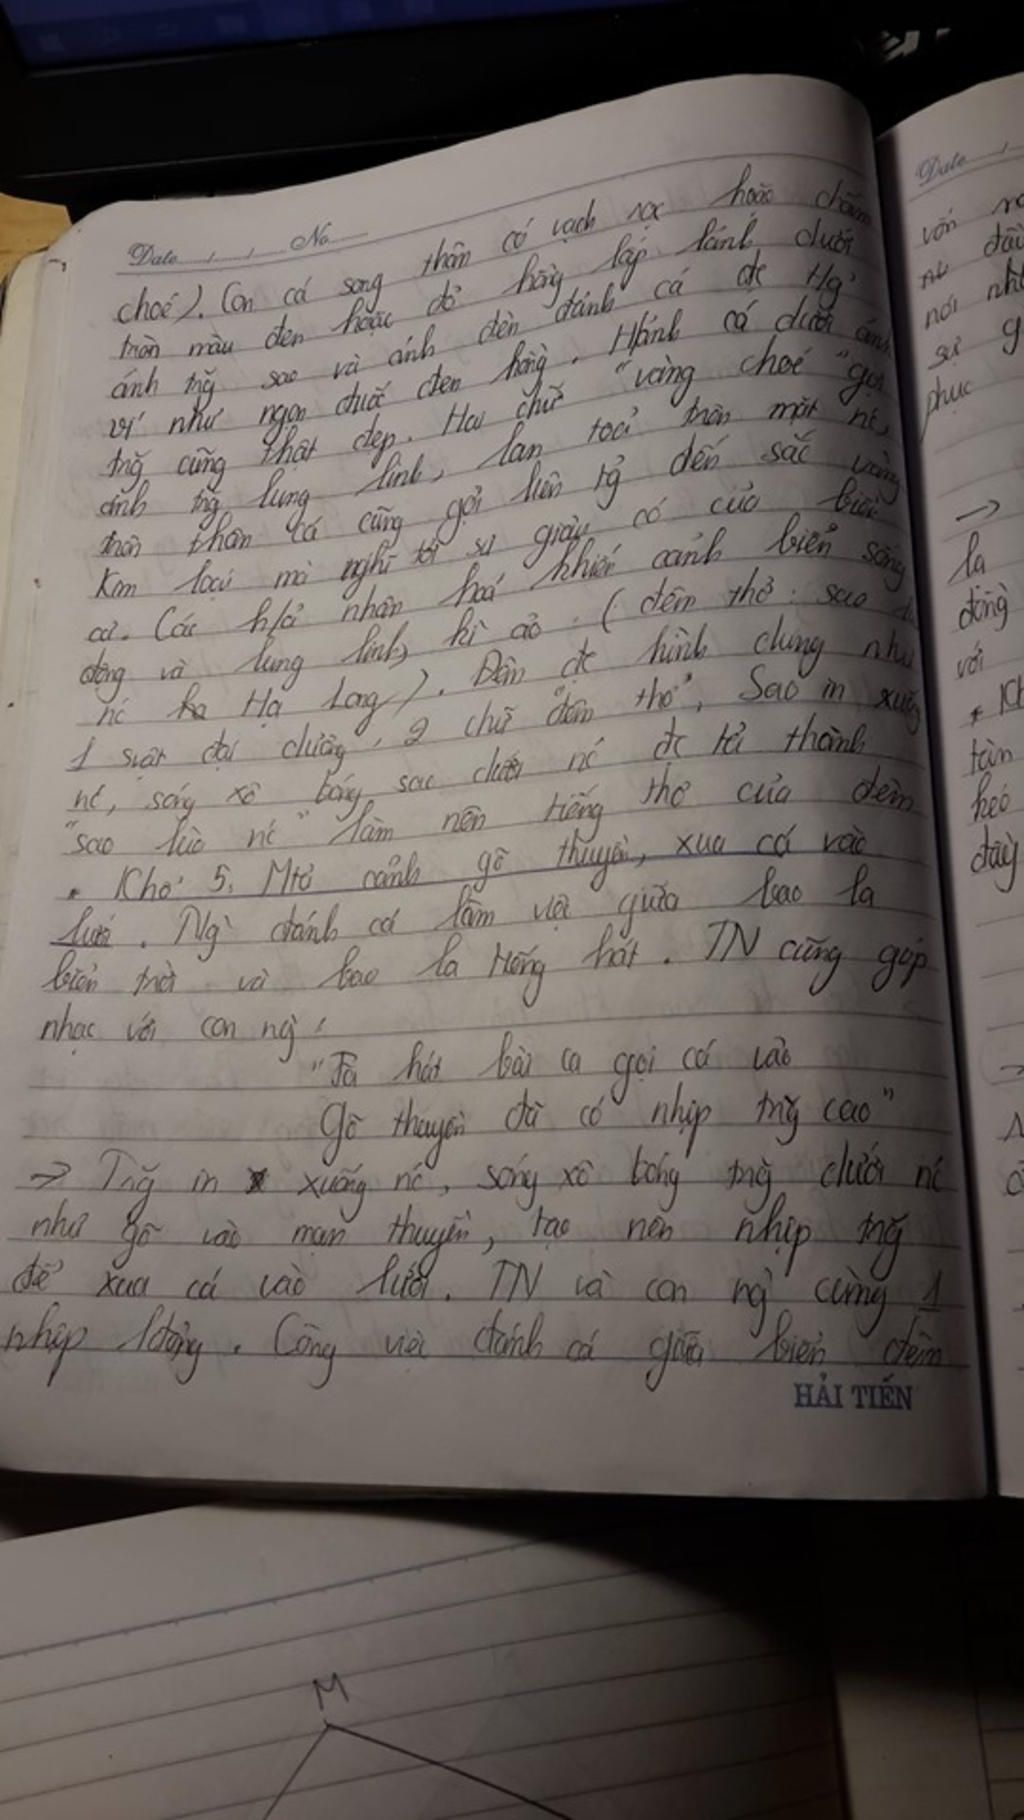 Date / / No
choé). Con cá song thân có vạch sọc hoặc chấm
tròn màu đen hoặc đỏ hồng lấp lánh dưới
ánh trg sao và ánh đèn đánh cá đc Hg'
ví như ngọn đuốc đen hồng. Hảnh cá dưới ánh
trg cũng thật đẹp. Hai chữ "vàng choé" gợi
ánh trg lung linh, lan toả trên mặt nc,
trên thân cá cũng gợi liên tg đến sắc vàng
Kim loại mà nghĩ tới sự giàu có của biển
cả. Các h/ả nhân hoá khiến cảnh biển sống
động và lung linh, kì ảo. (đêm thở: sao
nc Hạ Long). Đêm đc hình dung như
1 svật đại dương, 2 chữ "đêm thở", Sao in xuống
nc, sóng xô bóng sao dưới nc đc tả thành
"sao lùa nc" làm nên tiếng thở của đêm
* Khổ 5. Mtả cảnh gõ thuyền, xua cá vào
lưới. Ng` đánh cá làm việc giữa bao la
biển trời và bao la tiếng hát. TN cũng góp
nhạc với con ng`:
"Ta hát bài ca gọi cá vào
Gõ thuyền đã có nhịp trg cao"
→ Trg in xuống nc, sóng xô bóng trg dưới nc
như gõ vào mạn thuyền, tạo nên nhịp trg
để xua cá vào lưới. TN và con ng` cùng 1
nhịp lđộng. Công việc đánh cá giữa biển đêm
HẢI TIẾN
Date /
vốn
nói
sự g
phục
→
la
động
với
* Kh
tàn
kéo
đầy
→
M